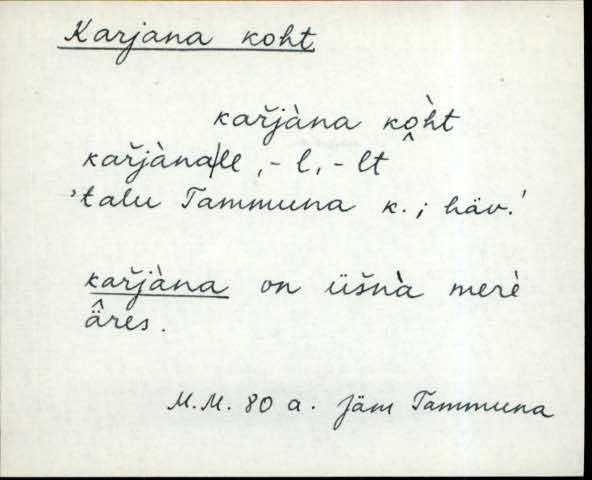 Karjana koht
kařjàna ko̭h̀t
kařjàna|le, -l, -lt
'talu Tammuna k.; häv.'
kařjàna on üšnà merè
ä̭res.
M.M. 80 a. Jäm Tammuna